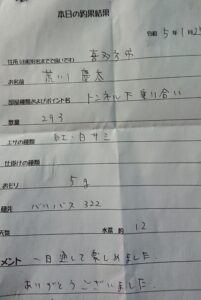 本日の釣果結果
日時 5年1月2
住所(市町村名まででO.K.です) 喜多方市
お名前 荒川 慶太
釣り場 トンネル下 乗り合い
数量 293
エサの種類 紅・白サシ
仕掛けの種類
おもり 5g
穂先 バリバス 322
天気 水深 約 12
メント 一日通して楽しめました。
ありがとうございました。